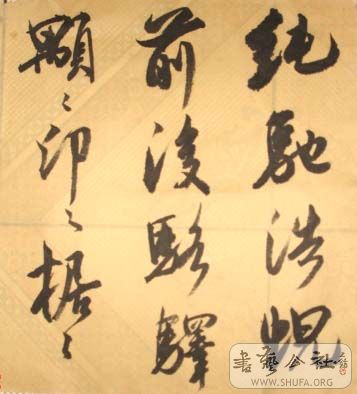 純馳浩蜺
前後駱驛
顒〻卬〻椐〻
書藝公社
WWW.SHUFA.ORG